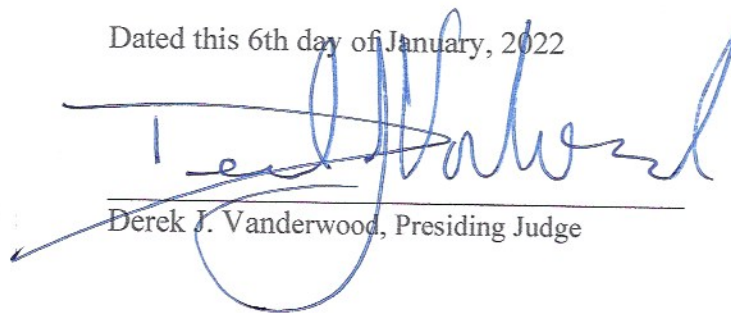 Dated this 6th day of January, 2022
Derek J. Vanderwood, Presiding Judge